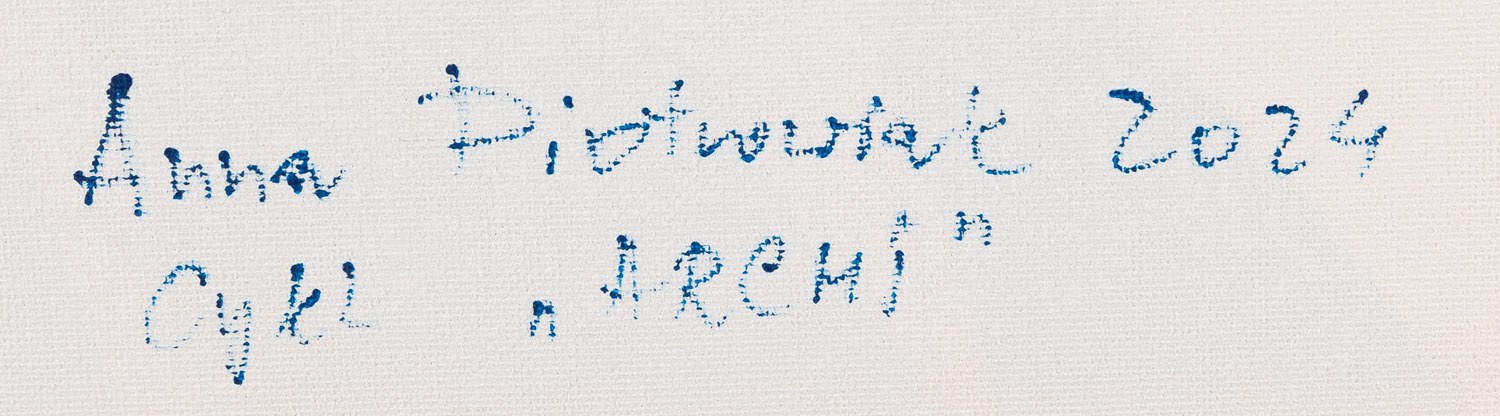 Anna Piotrowiak 2024
Cykl „ARCHI"